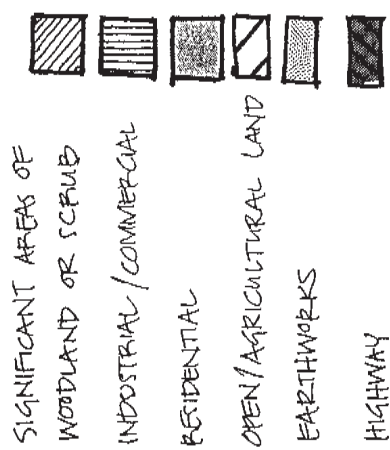 SIGNIFICANT AREAS OF
WOODLAND OR SCRUB
INDUSTRIAL/COMMERCIAL
RESIDENTIAL
OPEN/AGRICULTURAL LAND
EARTHWORKS
HIGHWAY